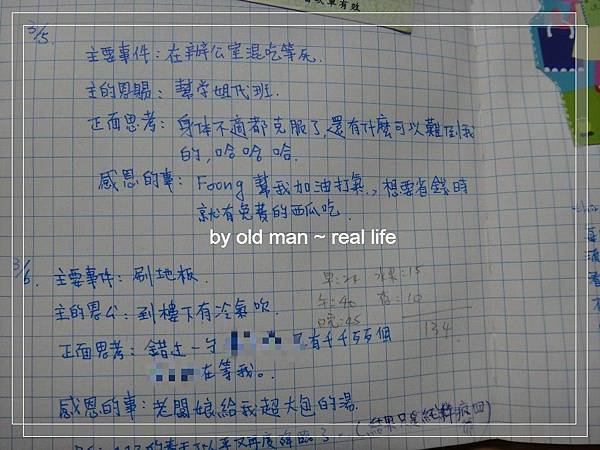 單有效
3/5.
主要事件：在辦公室混吃等死.
主的恩賜：幫學姐代班.
正面思考：身体不適都克服了,還有什麼可以難倒我
的,哈哈哈.
感恩的事：Foong 幫我加油打氣.,想要省錢時
就有免費的西瓜吃.
by old man ~ real life
3/6. 主要事件：刷地板.
早: 水果:15
主的恩公：到樓下有冷氣吹.
午:40 :10
晚:45
134
正面思考：錯過一 有千千万万個
在等我。.
感恩的事：老闆娘給我超大包的湯.
(結果只是純粹